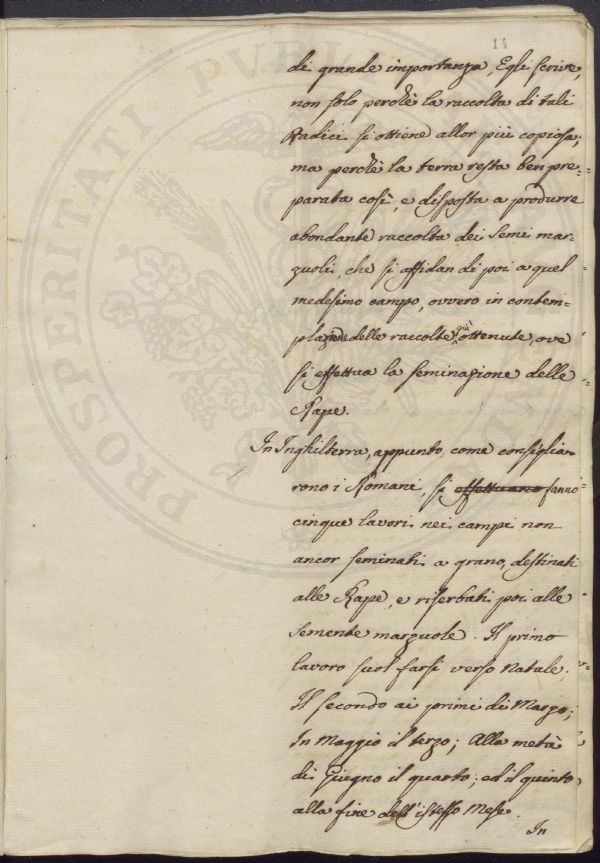 14
di grande importanza, Egli scrive,
non solo perchè la raccolta di tali
Radici si ottiene allor più copiosa;
ma perchè la terra resta ben pre-
parata così, e disposta a produrre
abondante raccolta dei semi mar-
zuoli, che si affidan di poi a quel
medesimo campo, ovvero in contem-
plazione delle raccolte già ottenute, ove
si effettua la seminazione delle
Rape.
In Inghilterra, appunto, come consiglia-
rono i Romani, si effettuano fanno
cinque lavori nei campi non
ancor seminati a grano, destinati
alle Rape, e riserbati poi alle
semente marzuole. Il primo
lavoro suol farsi verso Natale.
Il secondo ai primi di Marzo;
In Maggio il terzo; Alla metà
di Giugno il quarto; ed il quinto
alla fine dell'istesso Mese.
In
PROSPERITATI PVBLI